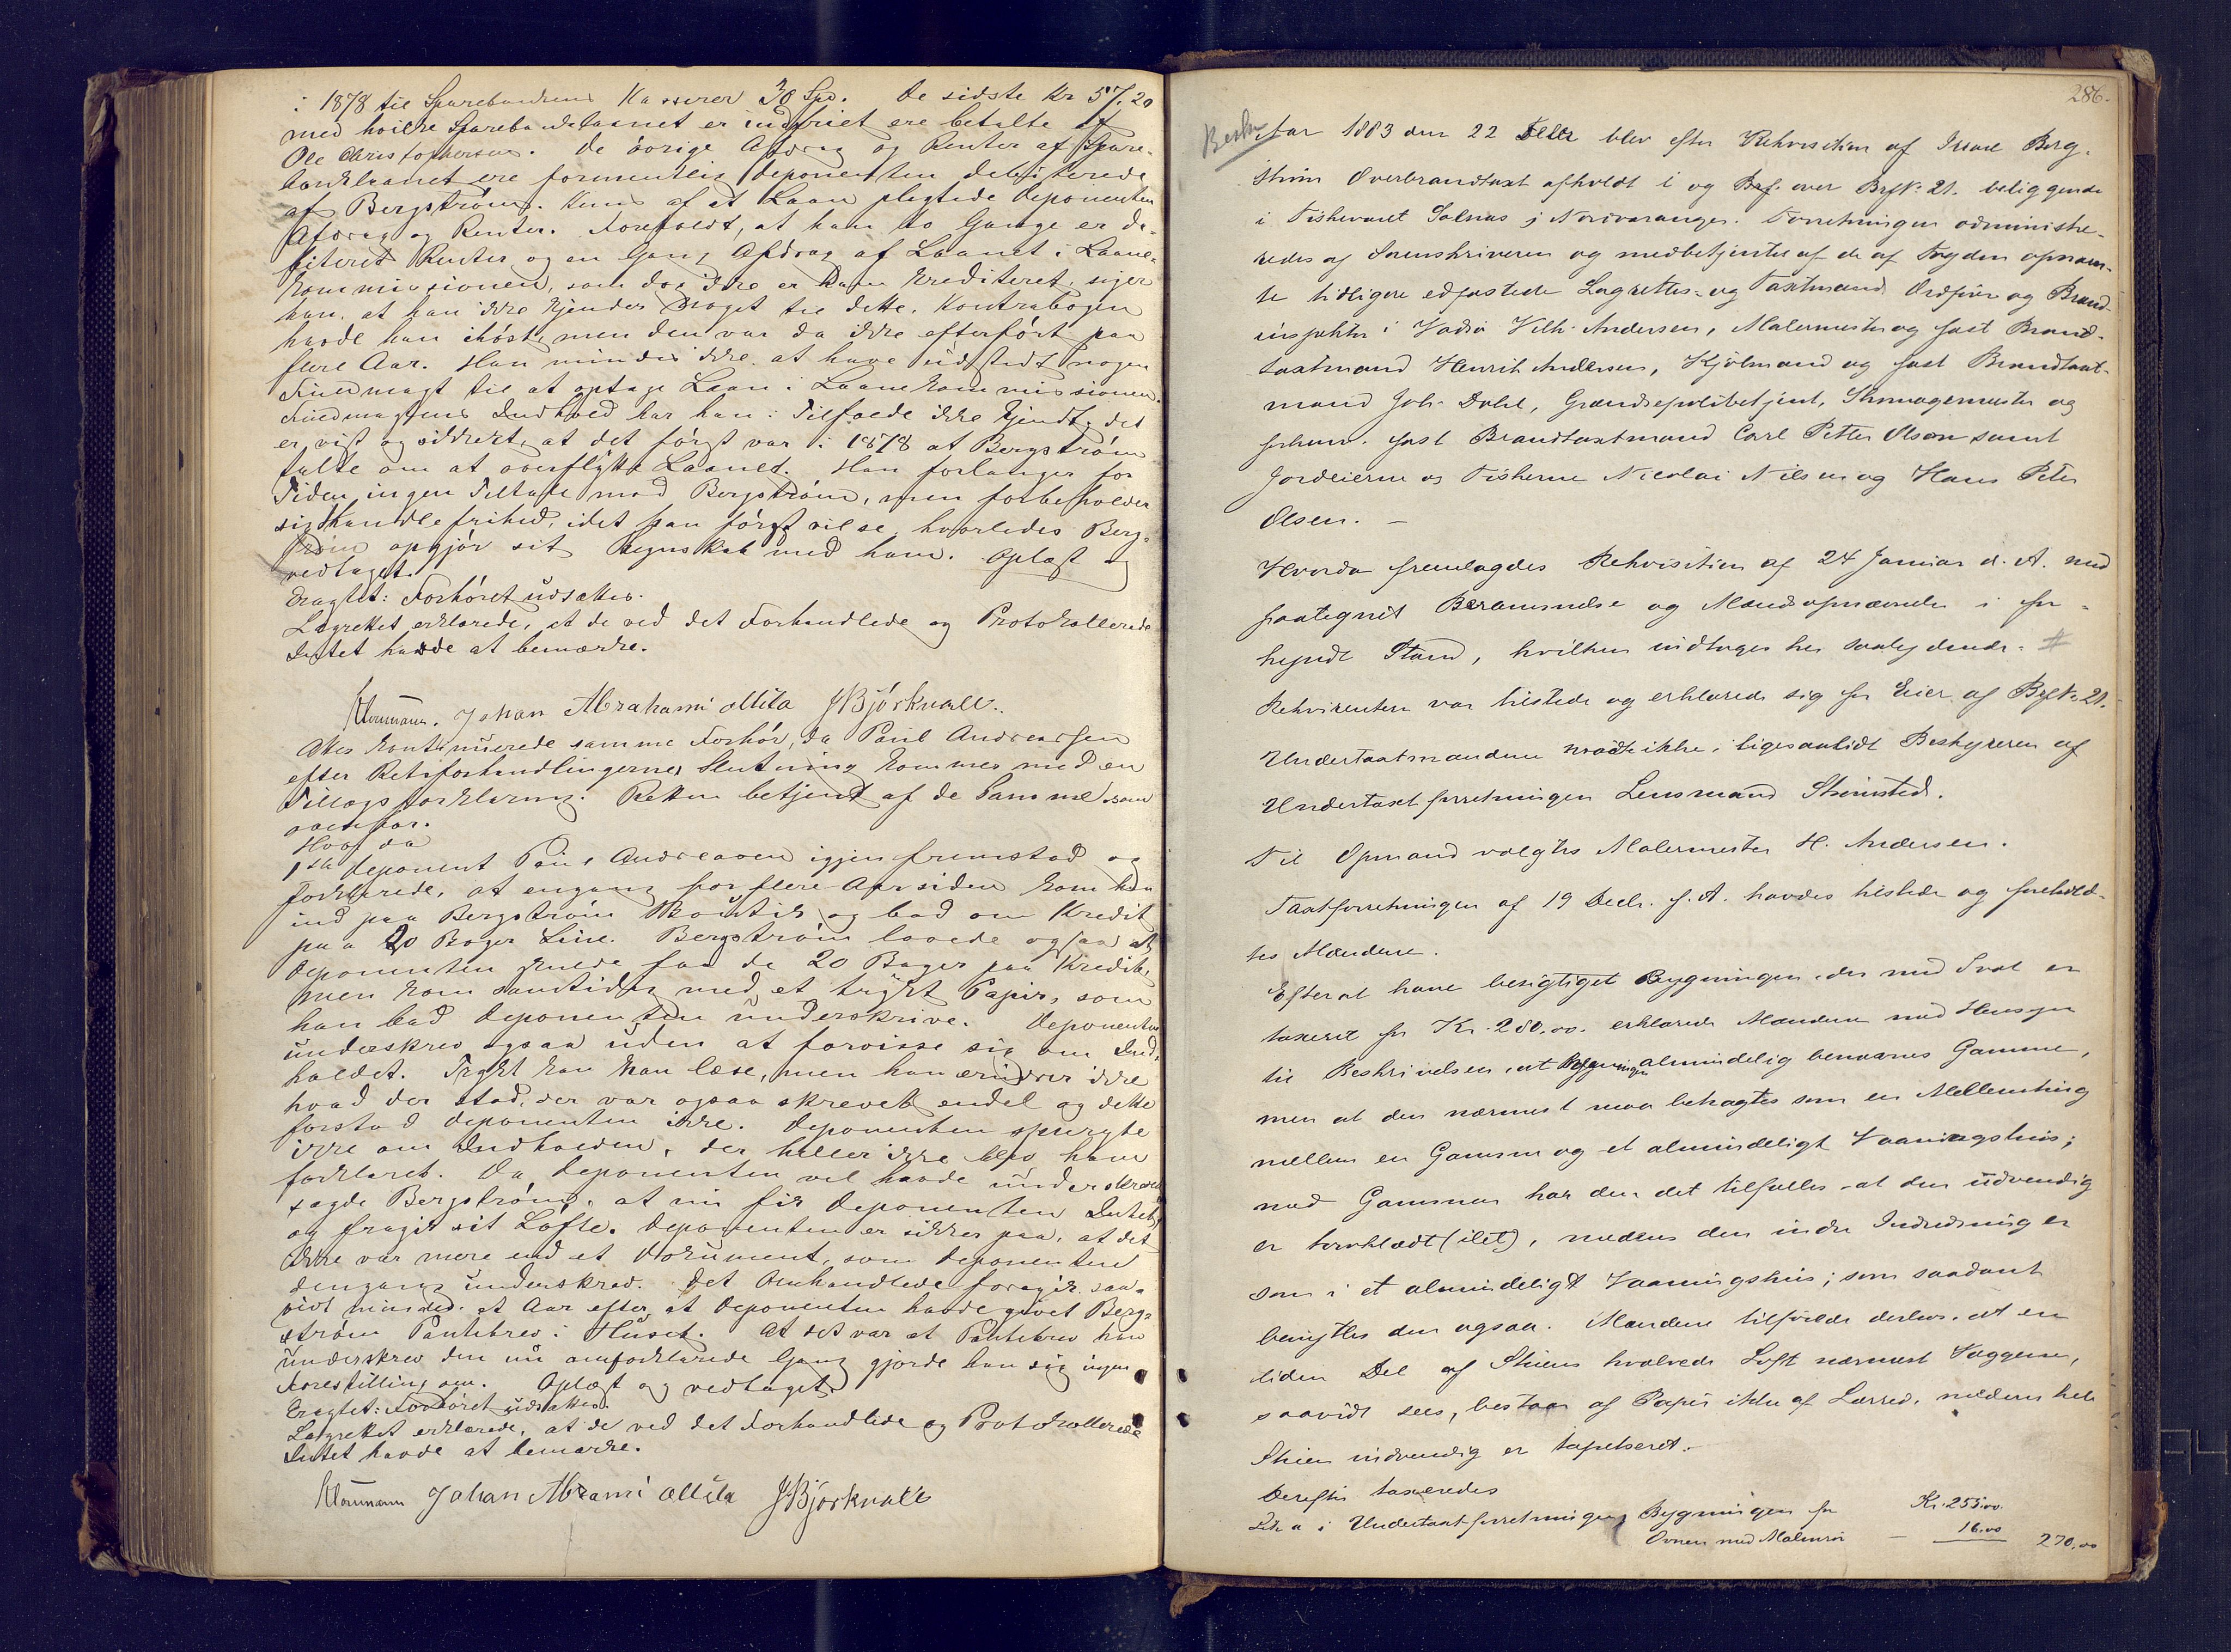 i 1878 til Sparebankens Kasserer 30 Spd. De sidste Kr 57.20
med hvilke Sparebanklaanet er indfriet ere betalte af
Ole Christophersen. De övrige Afdrag og Renter af Spare-
banklaanet ere formentlig Deponenten debiterede
af Bergström. Kun af et Laan pligtede Deponenten
Afdrag og Renter. Foreholdt, at han to Gange er de-
biteret Renter og en Gang Afdrag af Laanet i Laane-
kommissionen, som dog ikke er ham krediteret, siger
han, at han ikke kjender Noget til dette. Kontrabogen
havde han ihöst, men den var da ikke efterfört paa
flere Aar. Han mindes ikke at have udstedt nogen
Fuldmagt til at optage Laan i Laanekommissionen.
Fuldmagtens Indhold har han i Tilfælde ikke kjendt, det
er vist og sikkert, at det först var i 1878 at Bergström
talte om at overflytte Laanet. Han forlanger for
Tiden ingen Tiltale mod Bergström, men forbeholder
sig Handlefrihed, idet han först vil se, hvorledes Berg-
ström opgjör sit Regnskab med ham. Oplæst og
vedtaget.
Eragtet: Forhöret udsættes.
Lagrettet erklærede, at de ved det Forhandlede og Protokollerede
Intet havde at bemærke.
Johan Abrahami Mila J Björknall.
Atter kontinuerede samme Forhör, da Paul Andreassen
efter Retsforhandlingernes Slutning kommer med en
Tillægsforklaring. Retten betjent af de Samme som
ovenfor.
Hvor da
1ste Deponent Paul Andreasen igjen fremstod og
forklarede, at engang for flere Aar siden kom han
ind paa Bergström Boutik og bad om Kredit
paa 20 Boger Line. Bergström lovede ogsaa at
Deponenten skulde faa de 20 Boger paa Kredit,
men kom samtidig med et trykt Papir, som
han bad Deponenten underskrive. Deponenten
underskrev ogsaa uden at forvisse sig om Ind-
holdet. Trykt kan han læse, men han erindrer ikke
hvad der stod, der var ogsaa skrevet endel og dette
forstod Deponenten ikke. Deponenten spurgte
ikke om Indholdet, der heller ikke blev ham
forklaret. Da Deponenten vel havde underskrevet
sagde Bergström, at nu fik Deponenten Intet
og fragik sit Löfte. Deponenten er sikker paa, at det
ikke var mere end et Dokument, som Deponenten
dengang underskrev. Det Omhandlede foregik saa-
vidt mindes et Aar efter, at Deponenten havde givet Berg-
ström Pantebrev i Huset. At det var et Pantebrev han
underskrev den nu omforklarede Gang gjorde han sig ingen
Forestilling om. Oplæst og vedtaget.
Eragtet: Forhöret udsættes.
Lagrettet erklærede, at de ved det Forhandlede og Protokollerede
Intet havde at bemærke.
Johan Abrami Mila J Björknall
286.
Beskr
Aar 1883 den 22 Febr blev efter Rekvisition af Isak Berg-
ström Overbrandtaxt afholdt i og over BrfN. 21. beliggende
i Fiskeværet i Nordvaranger. Forretningen administre-
redes af Sorenskriveren og medbetjentes af de af Fogden opnævn-
te tidligere edfæstede Lagrettes- og Taxtmænd Ordförer og Brand-
inspektör i Vadsö Vilh. Andersen, Malermester og fast Brand-
taxtmand Henrik Andersen, Kjöbmand og fast Brandtaxt-
mand Joh. Dahl, Grændsepolitibetjent, Skomagermester og
forhenv. fast Brandtaxtmand Carl Petter Olsen samt
Jordeierne og Fiskerne Nicolai Nilsen og Hans Peter
Olsen. –
Hvorda fremlagdes Rekvisition af 24 Januar d. A. med
paategnet Berammelse og Mandsopnævnelse i for-
kyndt Stand, hvilken indtages her saalydende. #
Rekvirenten var tilstede og erklærede sig for Eier af BrfN. 21.
Undertaxtmændene mödte ikke, ligesaalidt Bestyreren af
Undertaxtforretningen Lensmand Strömsted.
Til Opmand valgtes Malermester H. Andersen.
Taxtforretningen af 19 Decb. f. A. havdes tilstede og forehold-
tes Mændene.
Efterat have besigtiget Bygningen, der med Sval er
taxeret for Kr. 280.00. erklærede Mændene med Hensyn
til Beskrivelsen, at Bygningen almindelig benævnes Gamme,
men at den nærmest maa betragtes som en Mellemting
mellem en Gamme og et almindeligt Vaaningshus;
med Gammen har den det tilfælles at den udvendig
er torvklædt (ilet), medens den indre Indredning er
som i et almindeligt Vaaningshus; som saadant
benyttes den ogsaa. Mændene tilföiede derhos, at en
liden Del af Stuens hvælvede Loft nærmest Væggene,
saavidt sees, bestaar af Papir ikke af Lærred, medens hele
Stuen indvendig er tapetseret.
Derefter taxeredes
Litr a i Undertaxtforretningen, Bygningen for Kr. 255.00.
Ovnen med Malmrör — 16.00 270,00